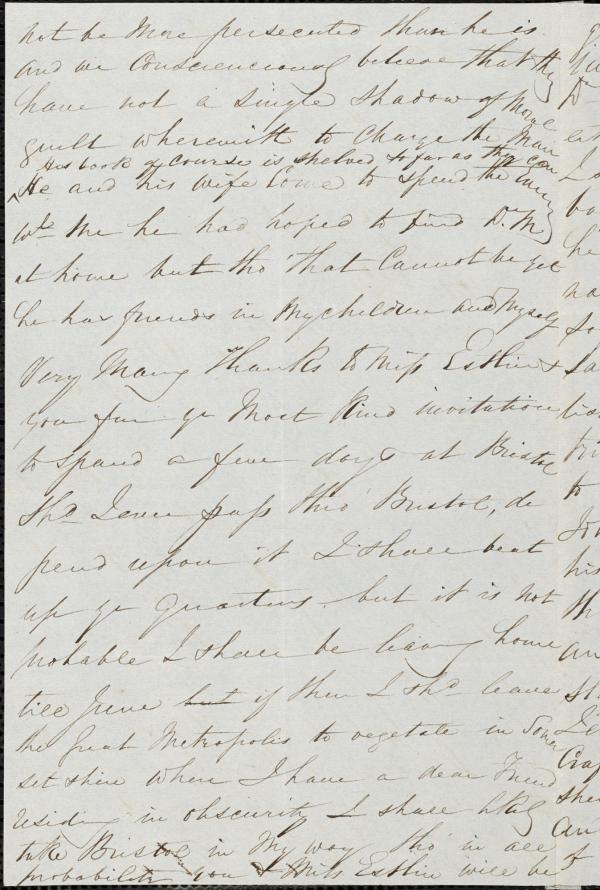 not be more persecuted than he is
and we Consciencously believe that they
have not a single shadow of moral
guilt wherewith to Charge the man
& His book of course is shelved so far as they can
He and his wife Come to spend the Eveng
wth me he had hoped to find D. M
at home but tho' that Cannot be yet
he has friends in my children and myself
Very Many Thanks to Miss Esthin &
you for yr Most kind invitation
to spend a few days at Bristol
Shd I ever pass thro' Bristol, de
pend upon it I shall beat
up yr quarters. but it is not
probable I shall be leaving home
till June but if then I shd leave
the Great Metropolis to vegetate in Somer
set shire where I have a dear Friend
residing in obscurity I shall likely
take Bristol in my way tho' in all
probability you & Miss Esthin will be